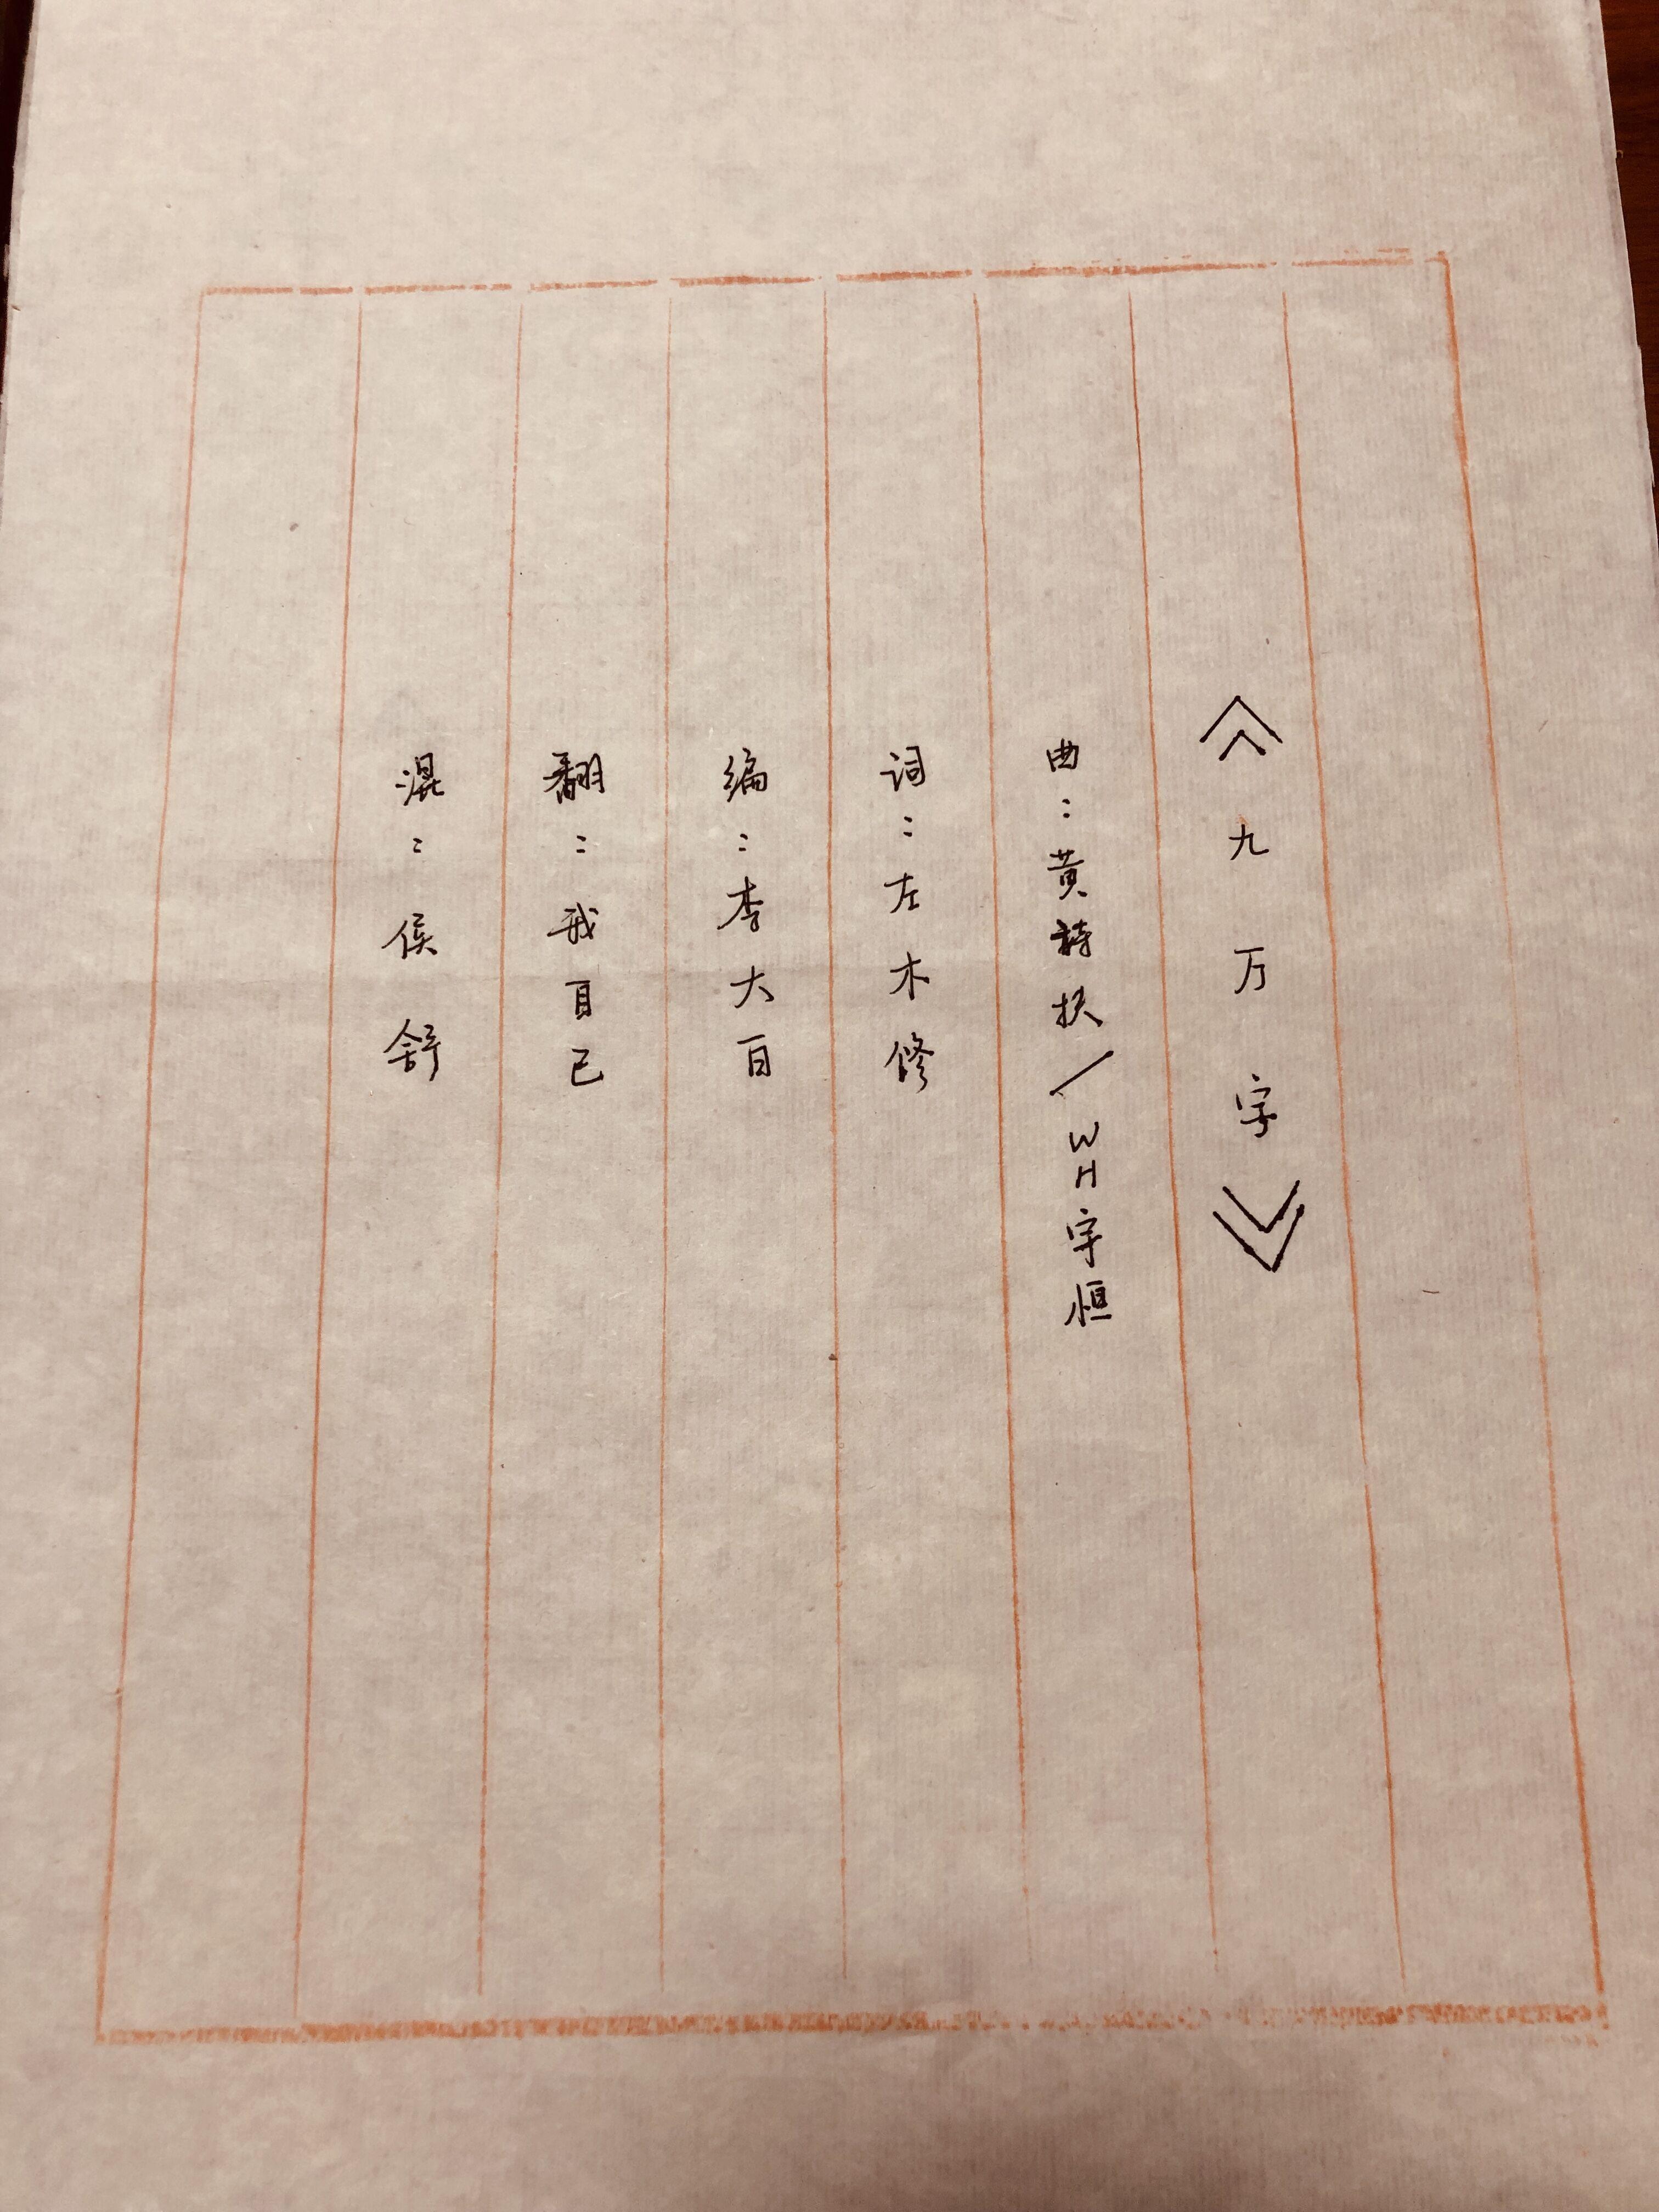 《九万字》
曲:黄诗扶/WH宇恒
词:左木修
编:李大百
翻:我自己
混:侯舒